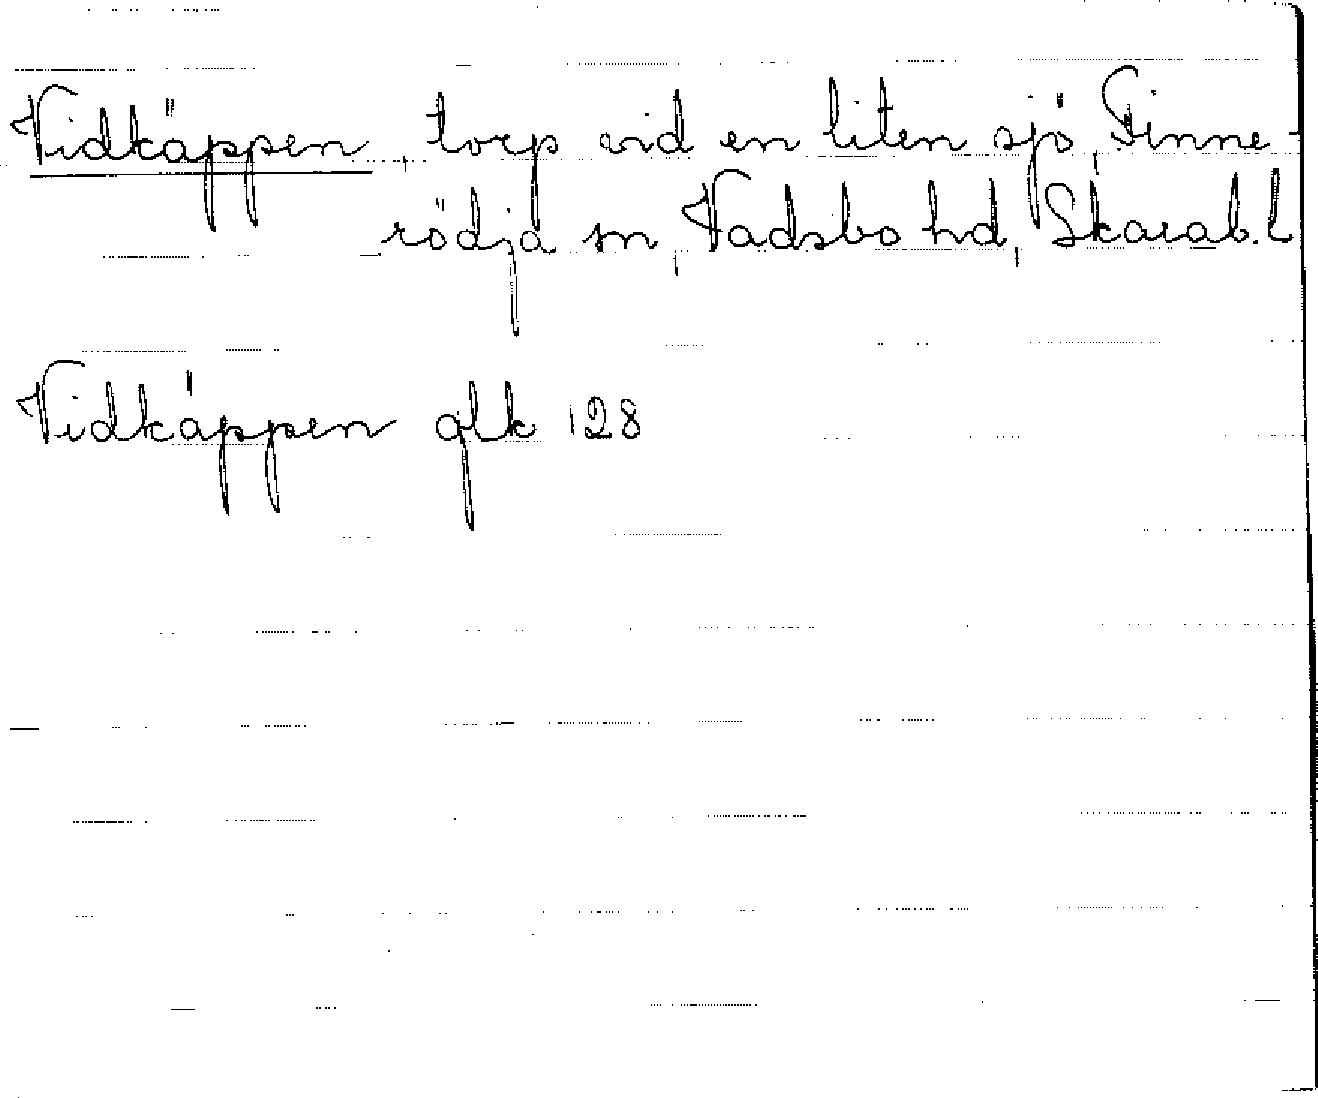 Vidkäppen, torp vid en liten sjö, Finne-
rödja sn, Vadsbo hd, Skarab. l
Vidkäppen glk 128